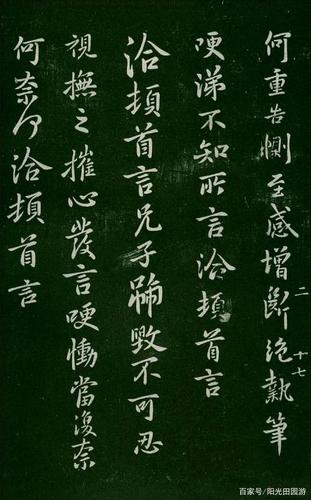 何重告惻至感增斷絶執筆
二 十七
哽涕不知所言洽頓首言
洽頓首言兄子號毀不可忍
視撫之摧心發言哽慟當復奈
何奈何洽頓首言
百家号/阳光田园游